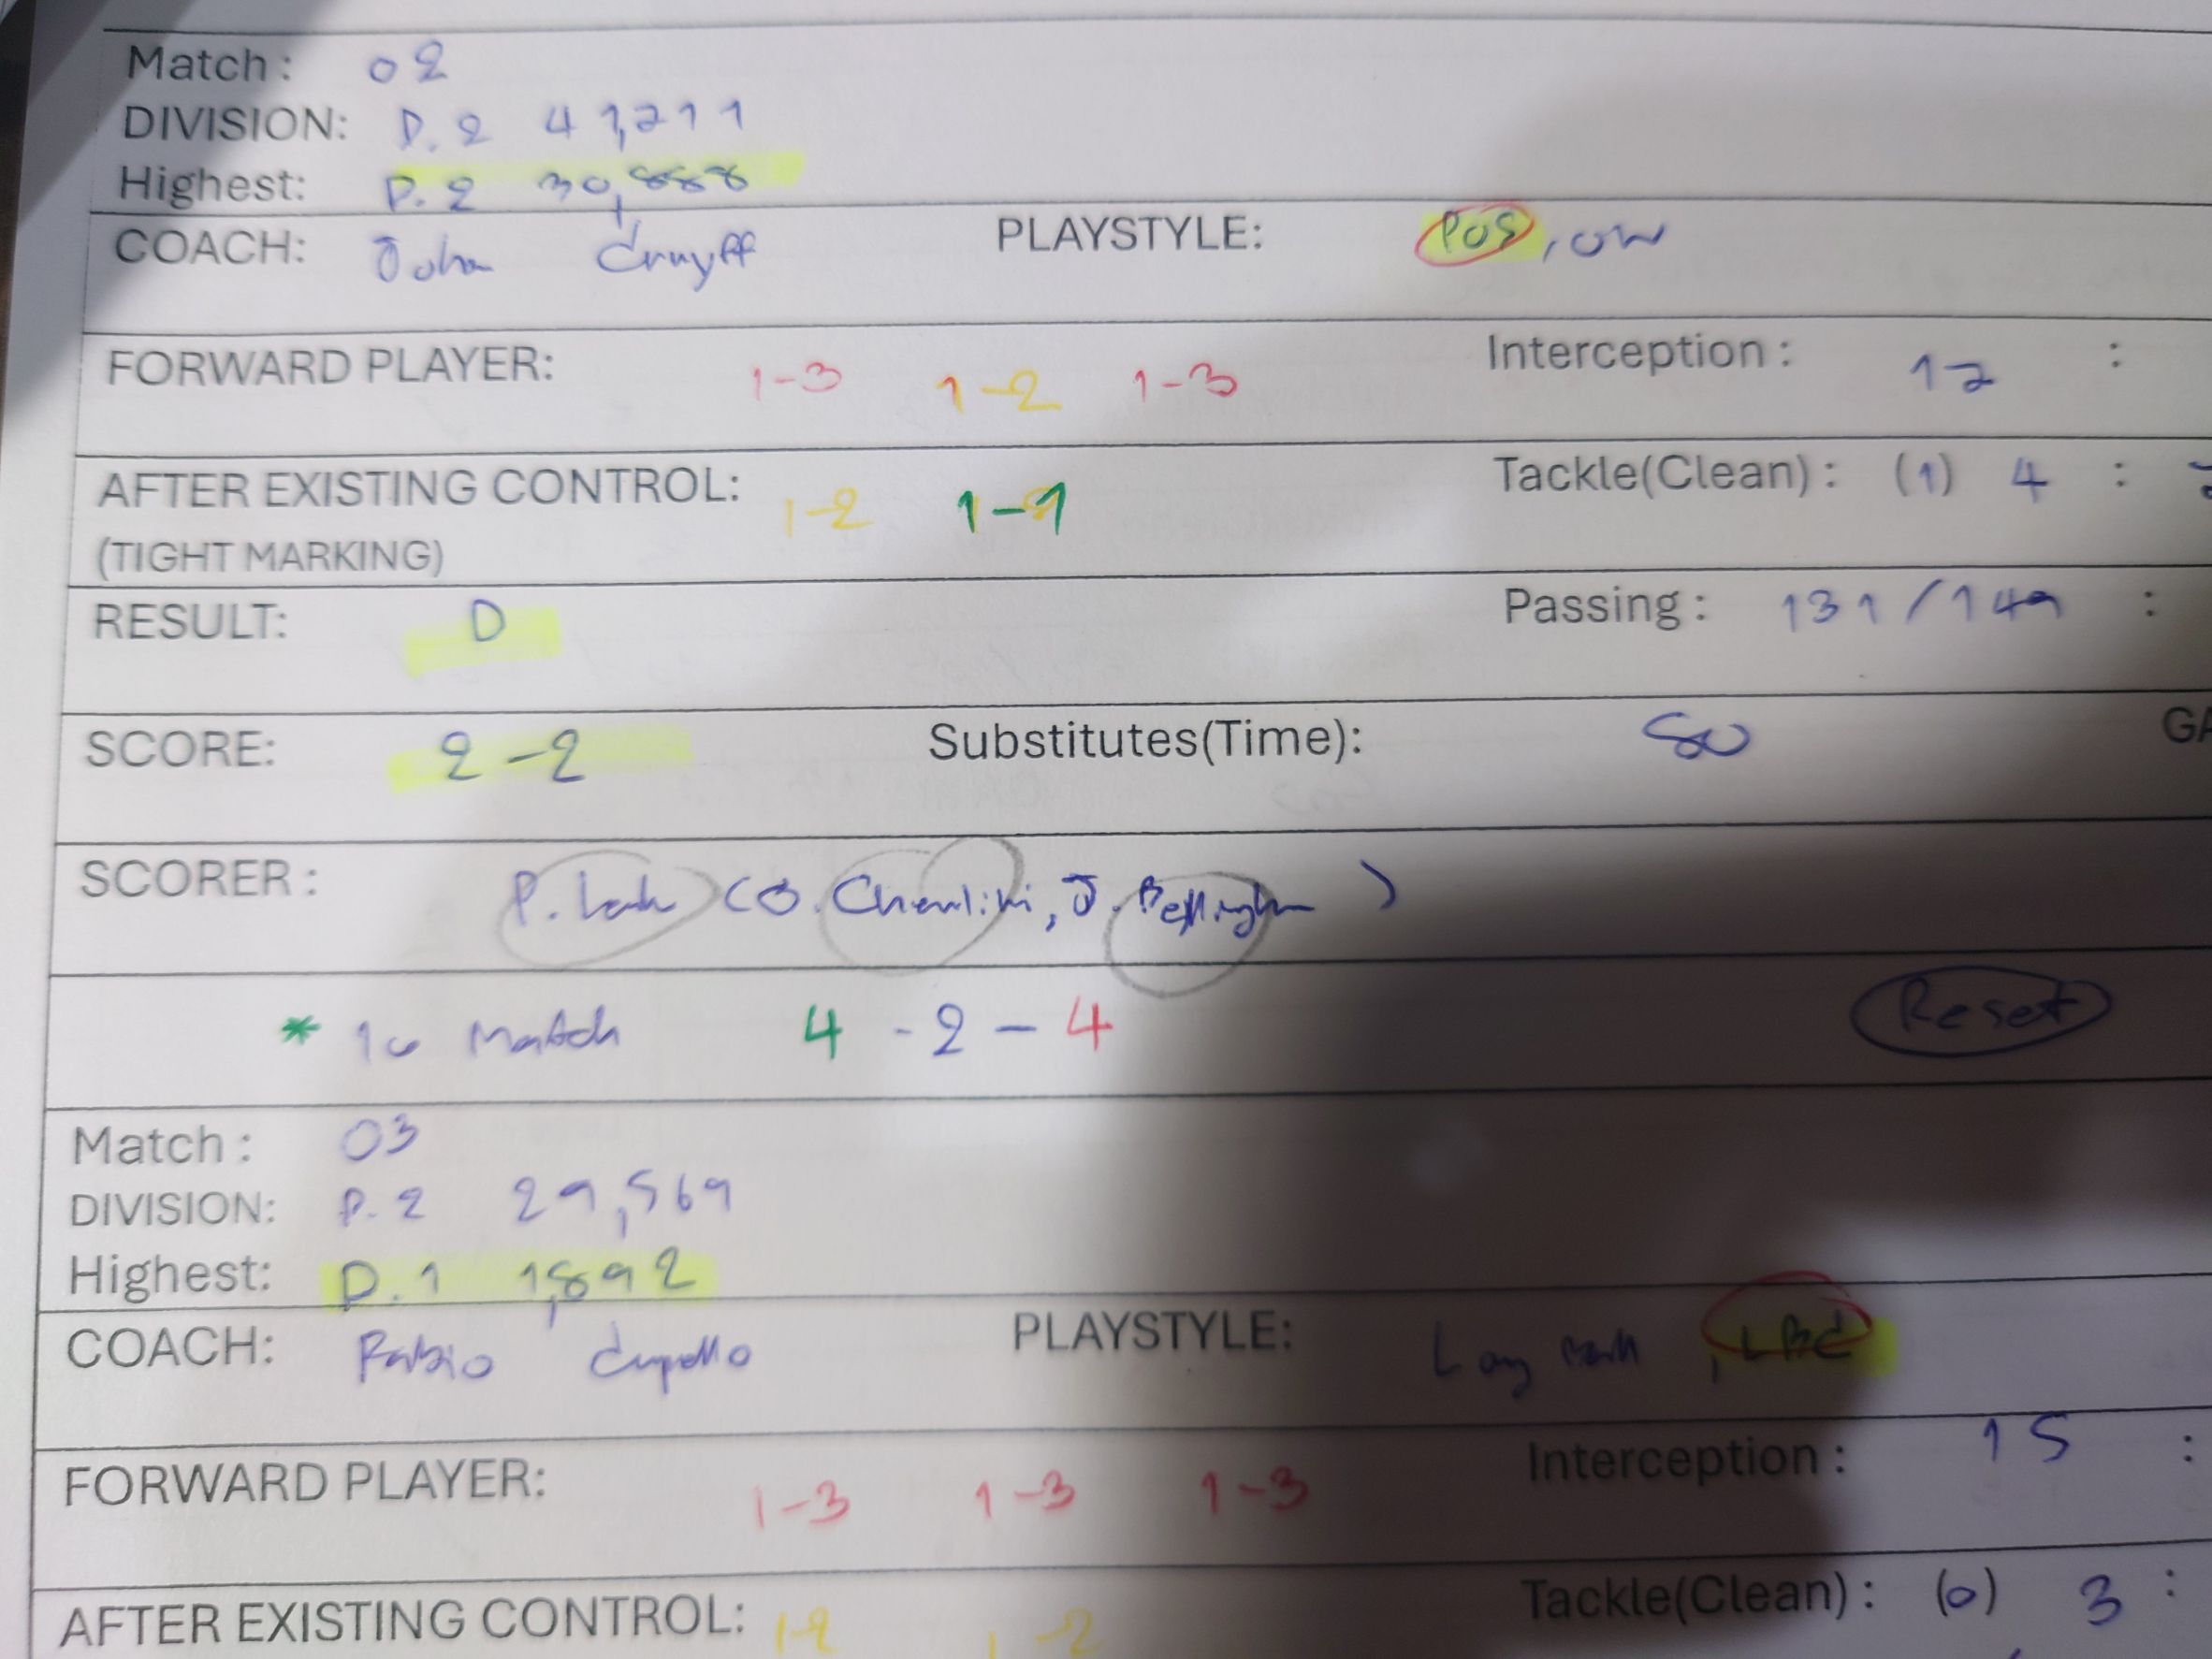 Match : 02
DIVISION: D.2 41,211
Highest: D.2 30,888
COACH: Johan Cruyff PLAYSTYLE: POS, OW
FORWARD PLAYER: 1-3 1-2 1-3 Interception : 12 :
AFTER EXISTING CONTROL: 1-2 1-1 Tackle(Clean) : (1) 4 :
(TIGHT MARKING)
RESULT: D Passing : 131/149 :
SCORE: 2-2 Substitutes(Time): GA
SCORER : P. (O. J. Bellingham)
* 10 Match 4 - 2 - 4 Reset
Match : 03
DIVISION: D.2 29,569
Highest: D.1 1,892
COACH: Fabio Capello PLAYSTYLE: Long Ball, LBC
FORWARD PLAYER: 1-3 1-3 1-3 Interception : 15 :
AFTER EXISTING CONTROL: 1-2 1-2 Tackle(Clean) : (0) 3 :